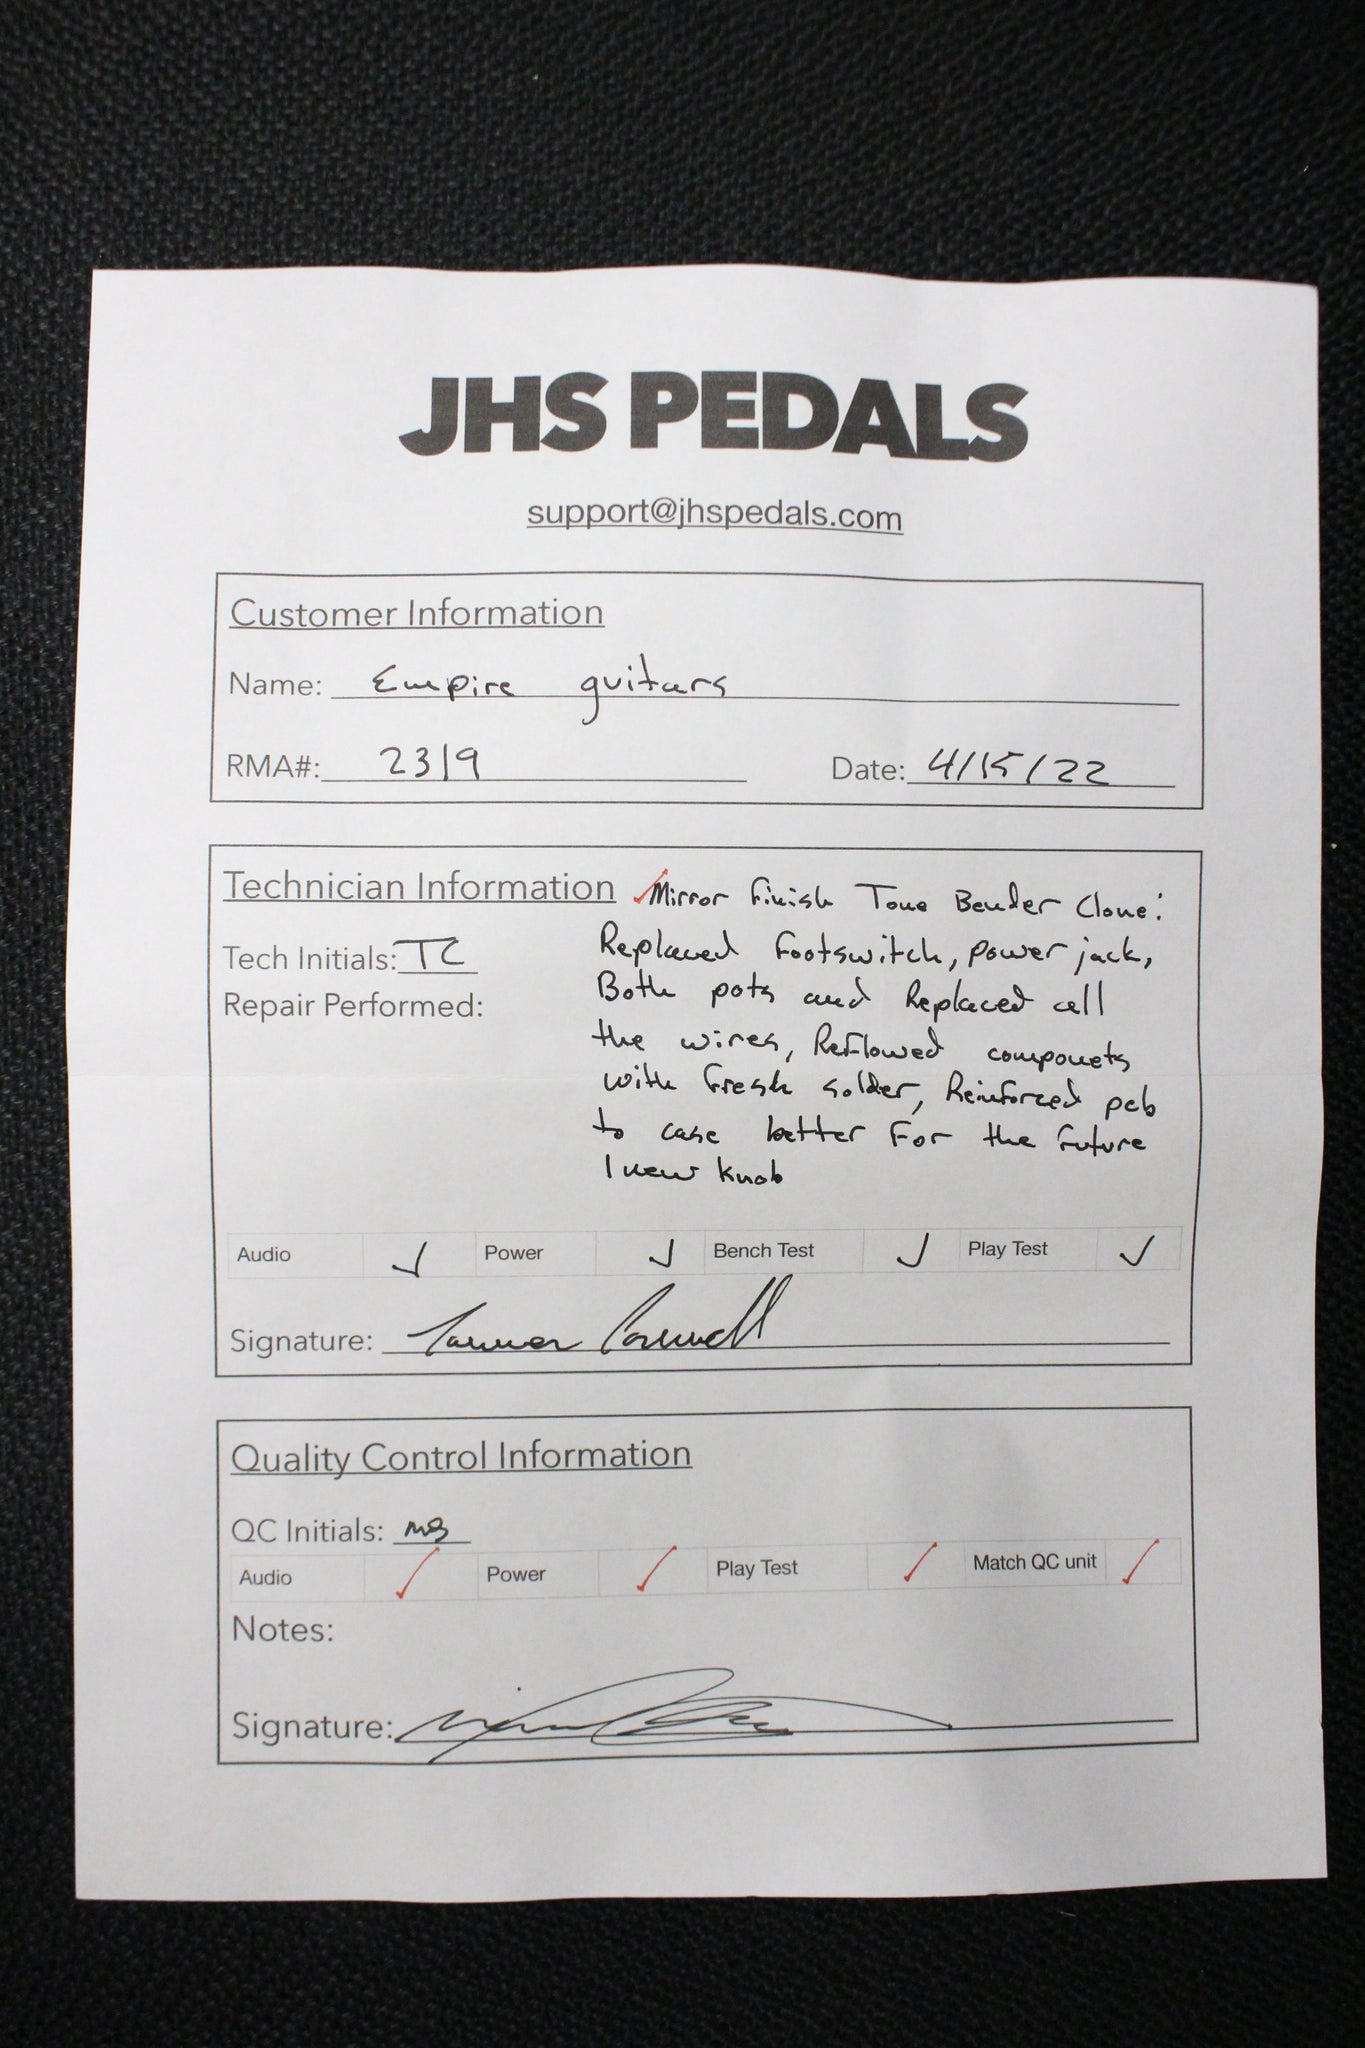 JHS PEDALS
support@jhspedals.com
Customer Information
Name: Empire guitars
RMA#: 2319 Date: 4/15/22
Technician Information Mirror Finish Tone Bender Clone:
Replaced Footswitch, power jack,
Tech Initials: TC
Both pots and Replaced all
Repair Performed:
the wires, Reflowed componets
with fresh solder, Reinforced pcb
to case better For the future
1 new knob
Audio ✓ Power ✓ Bench Test ✓ Play Test ✓
Signature: Tanner
Quality Control Information
QC Initials:
Audio ✓ Power ✓ Play Test ✓ Match QC unit ✓
Notes:
Signature: